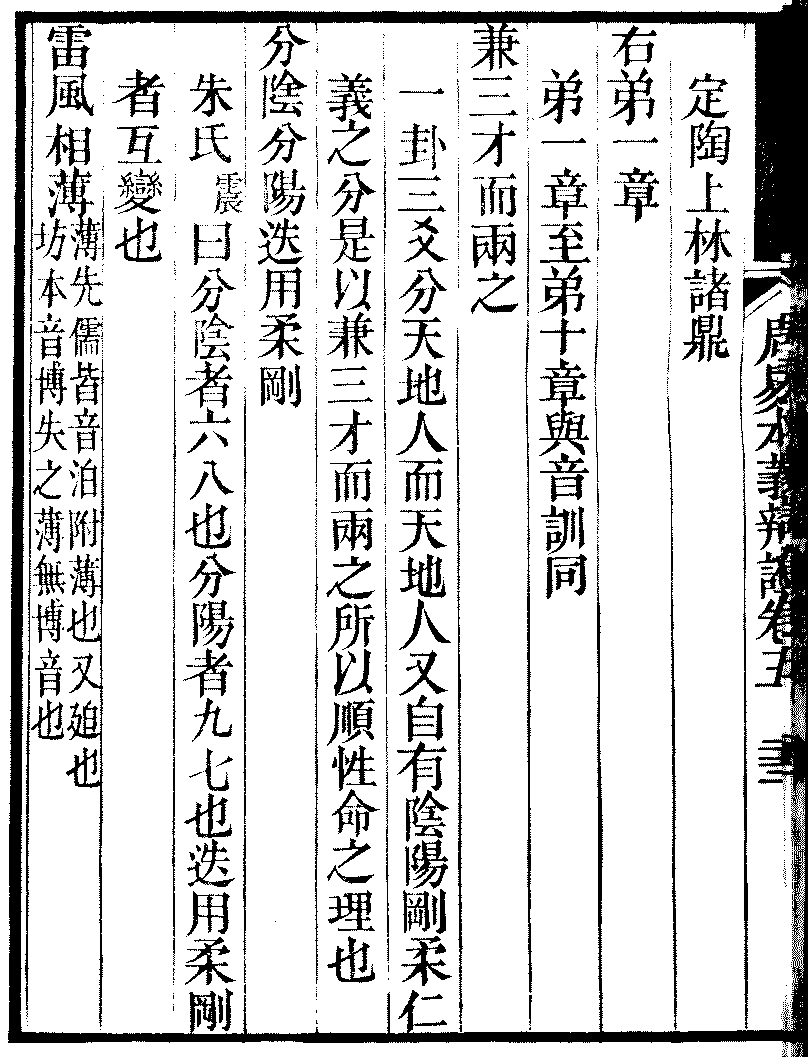 定陶上林諸鼎
右弟一章
弟一章至弟十章與音訓同
兼三才而兩之
一卦三爻分天地人而天地人又自有陰陽剛柔仁
義之分是以兼三才而兩之所以順性命之理也
分陰分陽迭用柔剛
朱氏震曰分陰者六八也分陽者九七也迭用柔剛
者互變也
雷風相薄薄先儒皆音泊附薄也又廹也
坊本音博失之薄無博音也
周易本義辯證卷五